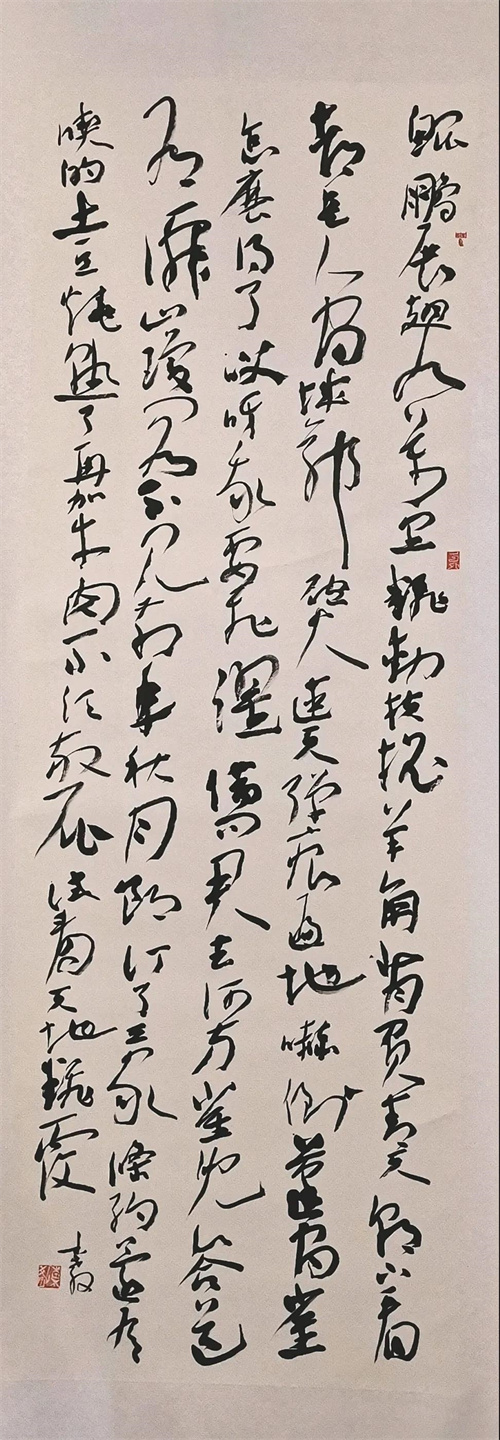 鲲鹏展翅九万里飜动扶摇羊角背负青天朝下看
都是人间城郭炮火连天弹痕遍地嚇倒蓬间雀
怎麽得了哎呀我要飞躍借问君去何方雀儿答道
有仙山瓊阁不见前年秋月朗订了三家條约还有
喫的土豆烧熟了再加牛肉不须放屁试看天地飜覆